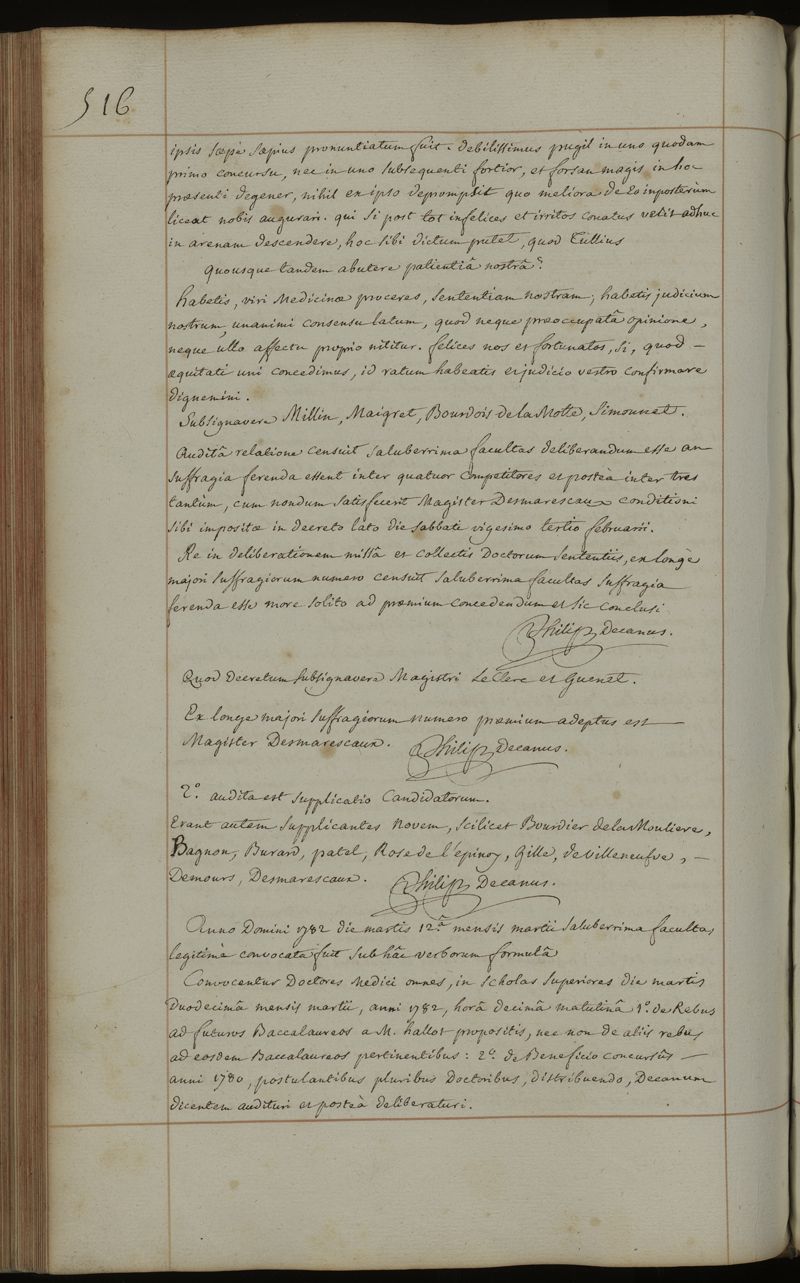 516
ipsis sæpè sæpius pronuntiatum fuit. debilissimus pugil in uno quodam
primo concursu, nec in uno subsequenti fortior, et forsan magis in hoc
præsenti degener, nihil ex ipso depromptit quo meliora de Eo in posterum
liceat nobis augurari. qui si post tot infelices et irritos conatus velit adhuc
in arenam descendere, hoc sibi dictum putet, quod Tullius
quousque tandem abutere patientiâ nostrâ?
habetis, viri Medicinæ proceres, sententiam nostram; habetis judicium
nostrum, unanimi consensu latum, quod neque præoccupatâ opinione,
neque ullo affectu proprio nititur. felices nos et fortunatos, si, quod —
æquitati uni concedimus, id ratum habeatis et judicio vestro confirmare
dignemini.
Subsignavere Millin, Maigret, Bourdois de la Motte, Simonnet.
Auditâ relatione censuit saluberrima facultas deliberandum esse an
suffragia ferenda essent inter quatuor Competitores et posteà inter tres
tantùm, cum nondum satisfecerit Magister Desmarescaux conditioni
sibi impositæ in decreto lato die sabbati vigesimo tertio februarii.
Re in deliberationem missâ et collectis Doctorum sententiis, ex longè
majori suffragiorum numero censuit saluberrima facultas suffragia
ferenda esse more solito ad præmium concedendum et sic conclusi
Philip Decanus.
Quod decretum subsignavere Magistri Le Clerc et Guenet.
Ex longe majori suffragiorum numero præmium adeptus est —
Magister Desmarescaux. Philip Decanus.
2.° audita est supplicatio Candidatorum.
Erant autem supplicantes Novem, scilicet Bourdier de la Mouliere,
Bagnon, Burard, patel, Rose de l'épinoy, Gille, de Villeneufve, —
Demours, Desmarescaux. Philip Decanus.
Anno Domini 1782 die martis 12.ª mensis martii saluberrima facultas
legitimè convocata fuit sub hâc verborum formulâ
Convocentur Doctores Medici omnes, in scholas superiores die martis
Duodecimâ mensis martii, anni 1782, horâ decimâ matutinâ 1.° de Rebus
ad futuros Baccalaureos a M. hallot propositis, nec non de aliis rebus
ad eosdem Baccalaureos pertinentibus: 2.° de Beneficio concursûs —
anni 1780, postulantibus pluribus Doctoribus, distribuendo, Decanum
dicentem audituri et posteà deliberaturi.